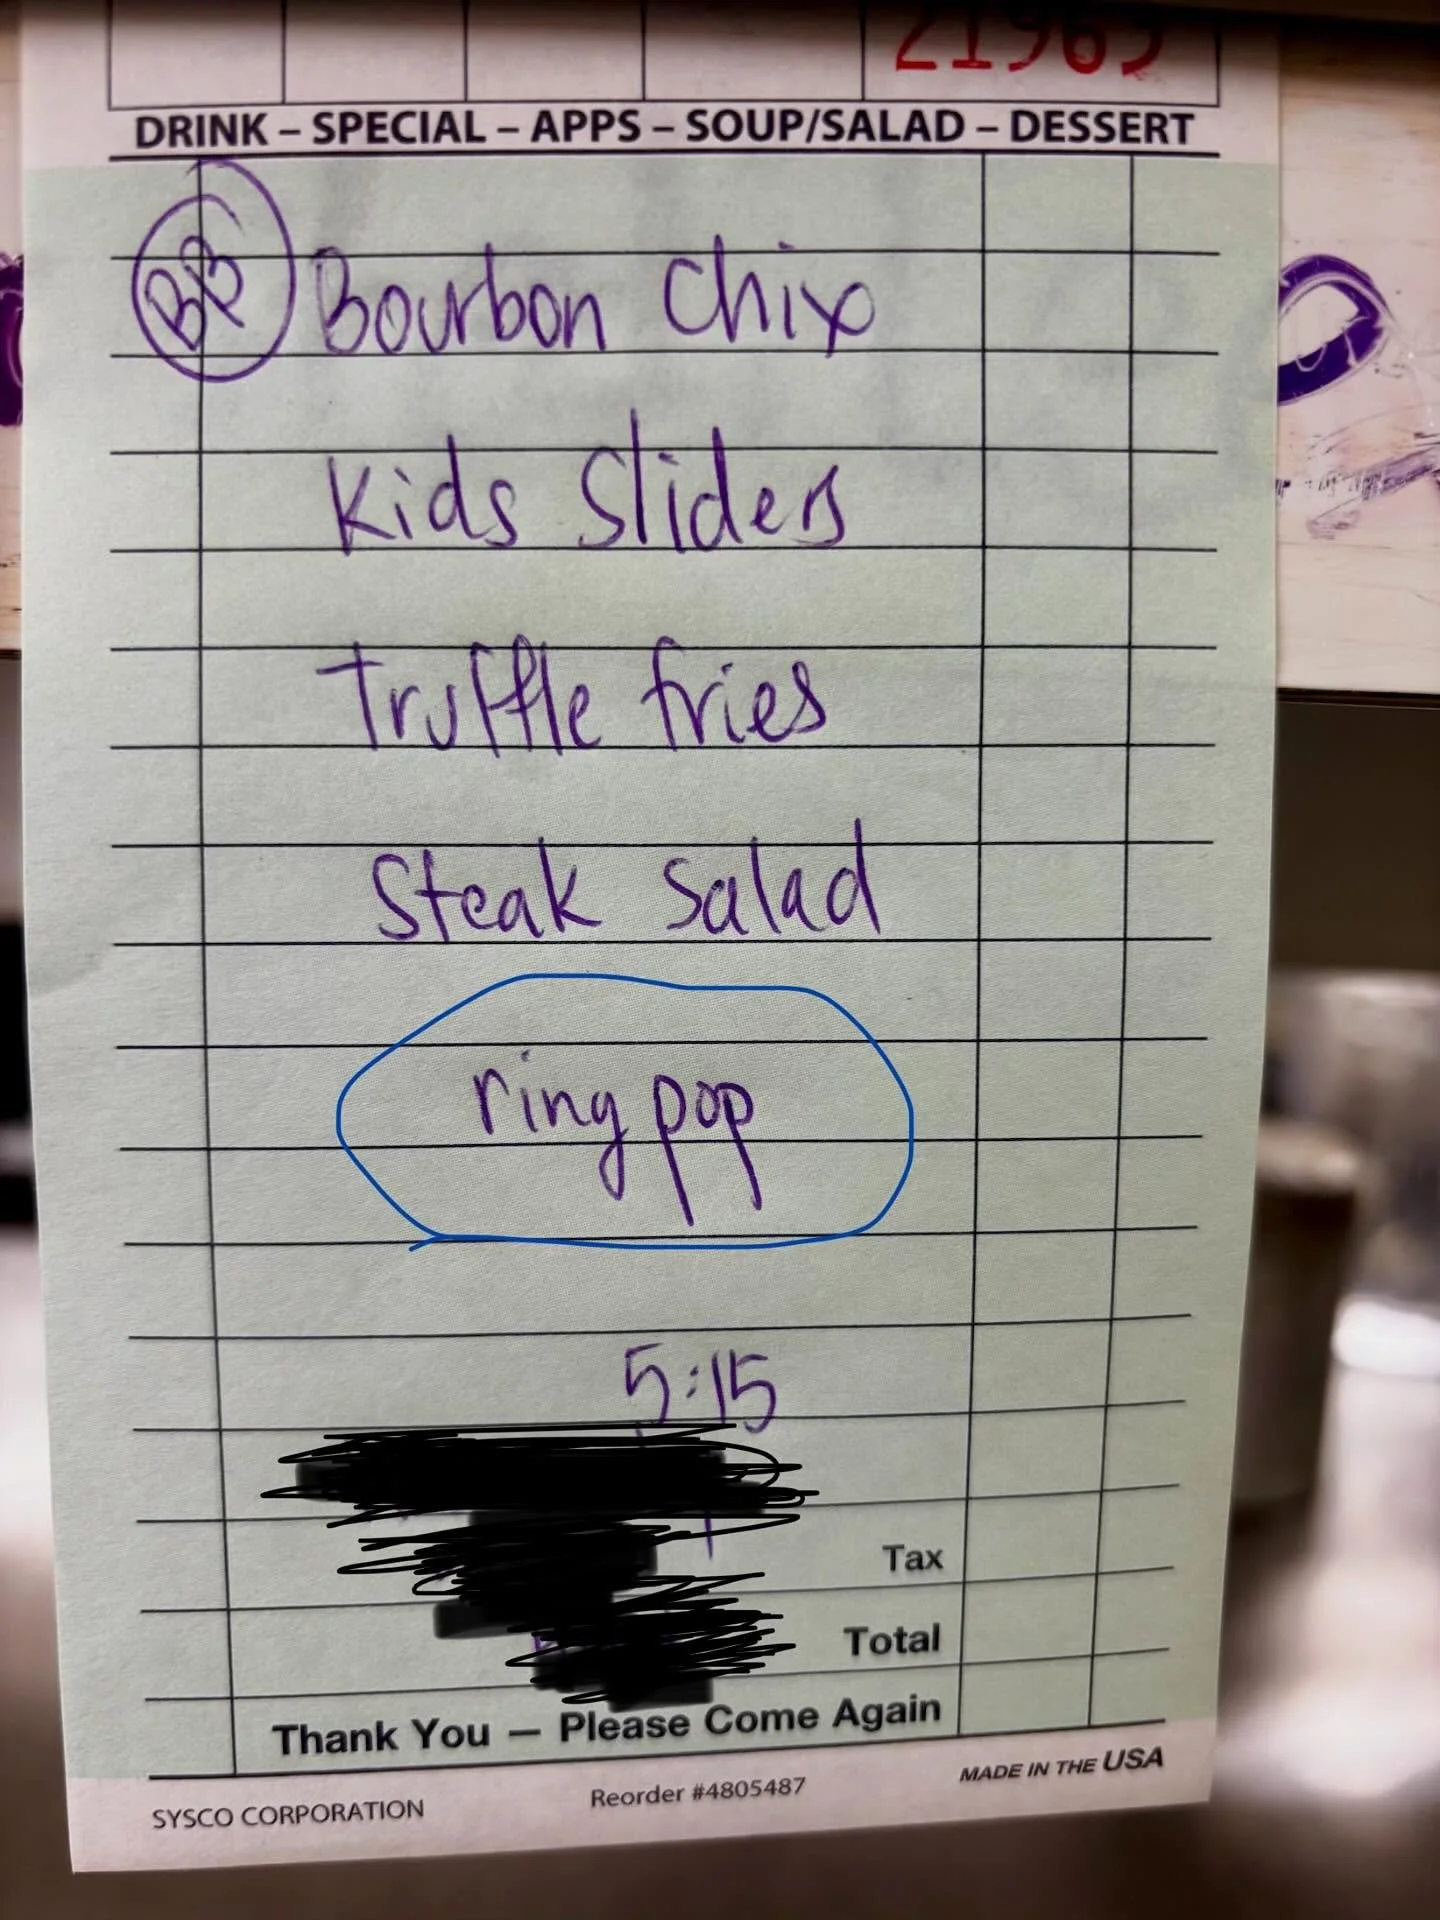 21965
DRINK – SPECIAL – APPS – SOUP/SALAD – DESSERT
BB Bourbon Chix
Kids Sliders
Truffle fries
Steak Salad
ring pop
5:15
Tax
Total
Thank You — Please Come Again
SYSCO CORPORATION Reorder #4805487 MADE IN THE USA